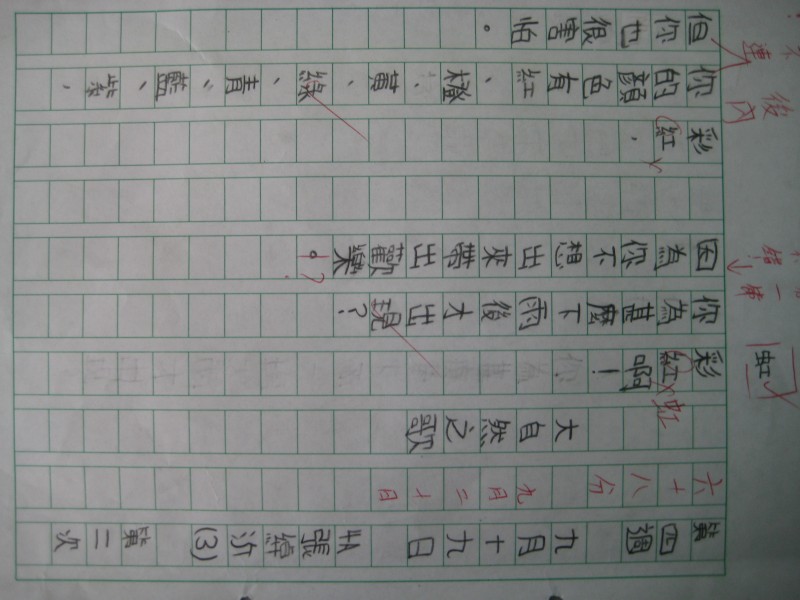 第四週 九月十九日 4A 張綽沂(3) 第二次
六十八分 九月二十日
大自然之歌
彩紅啊！
虹
虹
你為甚麼下雨後才出現？
因為你不想出來帶出歡樂。
彩紅，
你的顏色有紅、橙、黃、綠、青、藍、紫，
但你也很害怕。